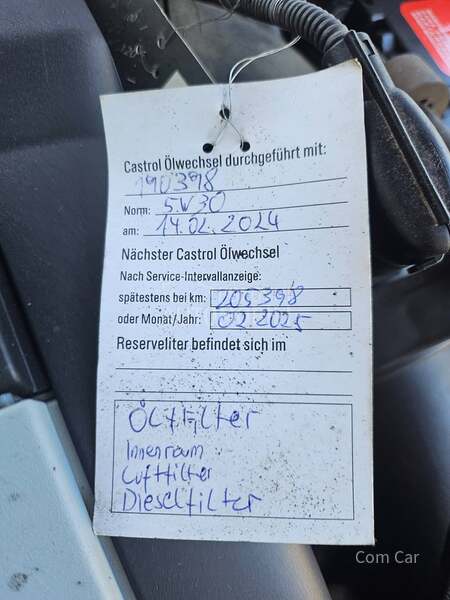 Castrol Ölwechsel durchgeführt mit:
190398
Norm: 5W30
am: 14.02.2024
Nächster Castrol Ölwechsel
Nach Service-Intervallanzeige:
spätestens bei km: 205398
oder Monat/Jahr: 02.2025
Reserveliter befindet sich im
Ölfilter
Innenraum
Luftfilter
Dieselfilter
Com Car